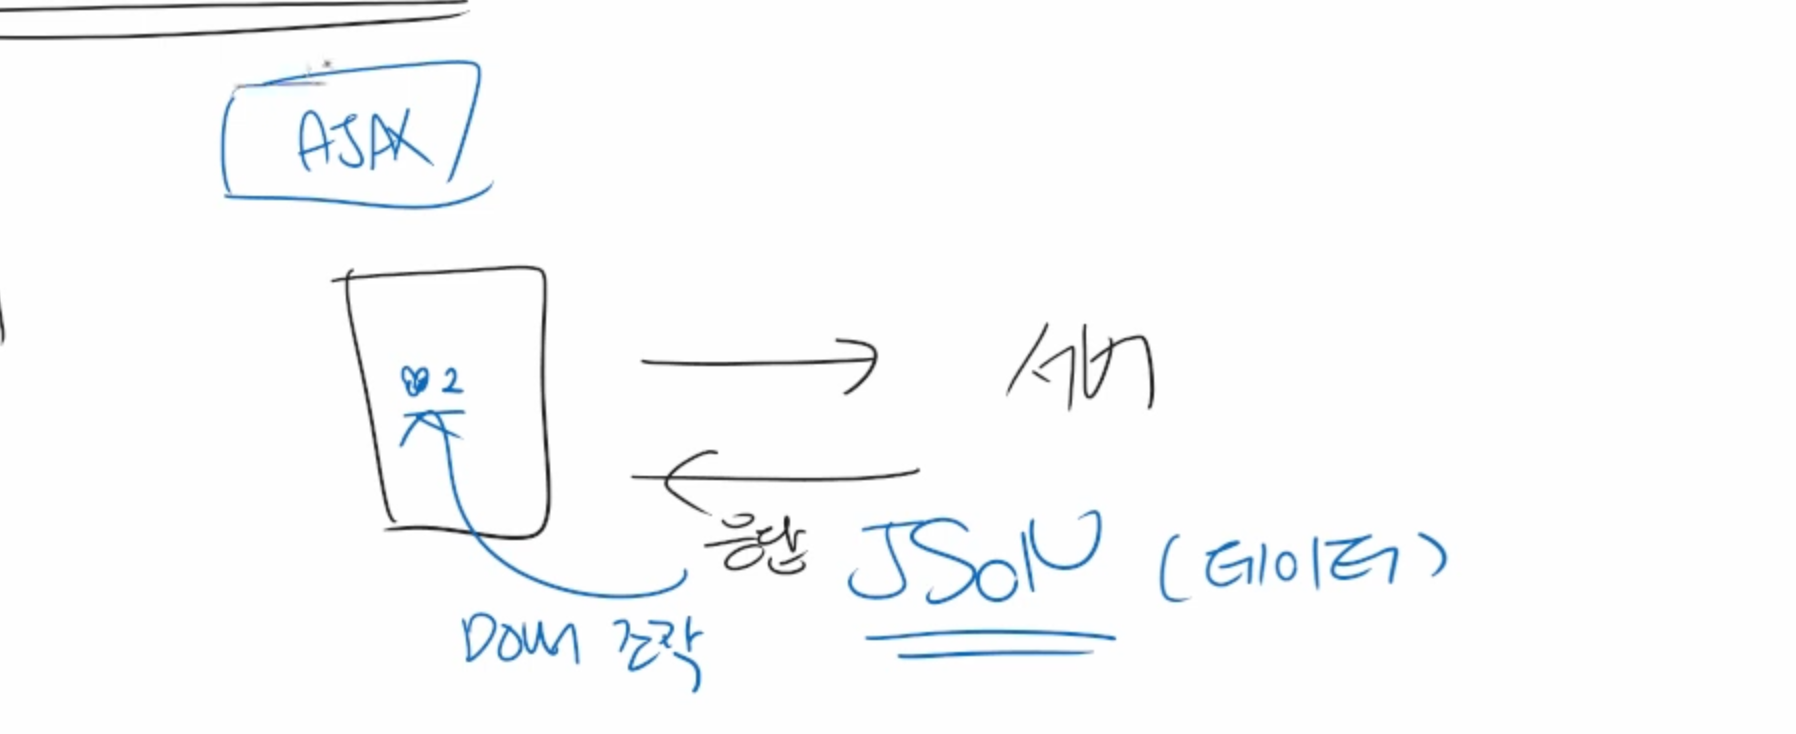 AJAX
♡ 2
서버
응답 JSON (데이터)
DOM 조작